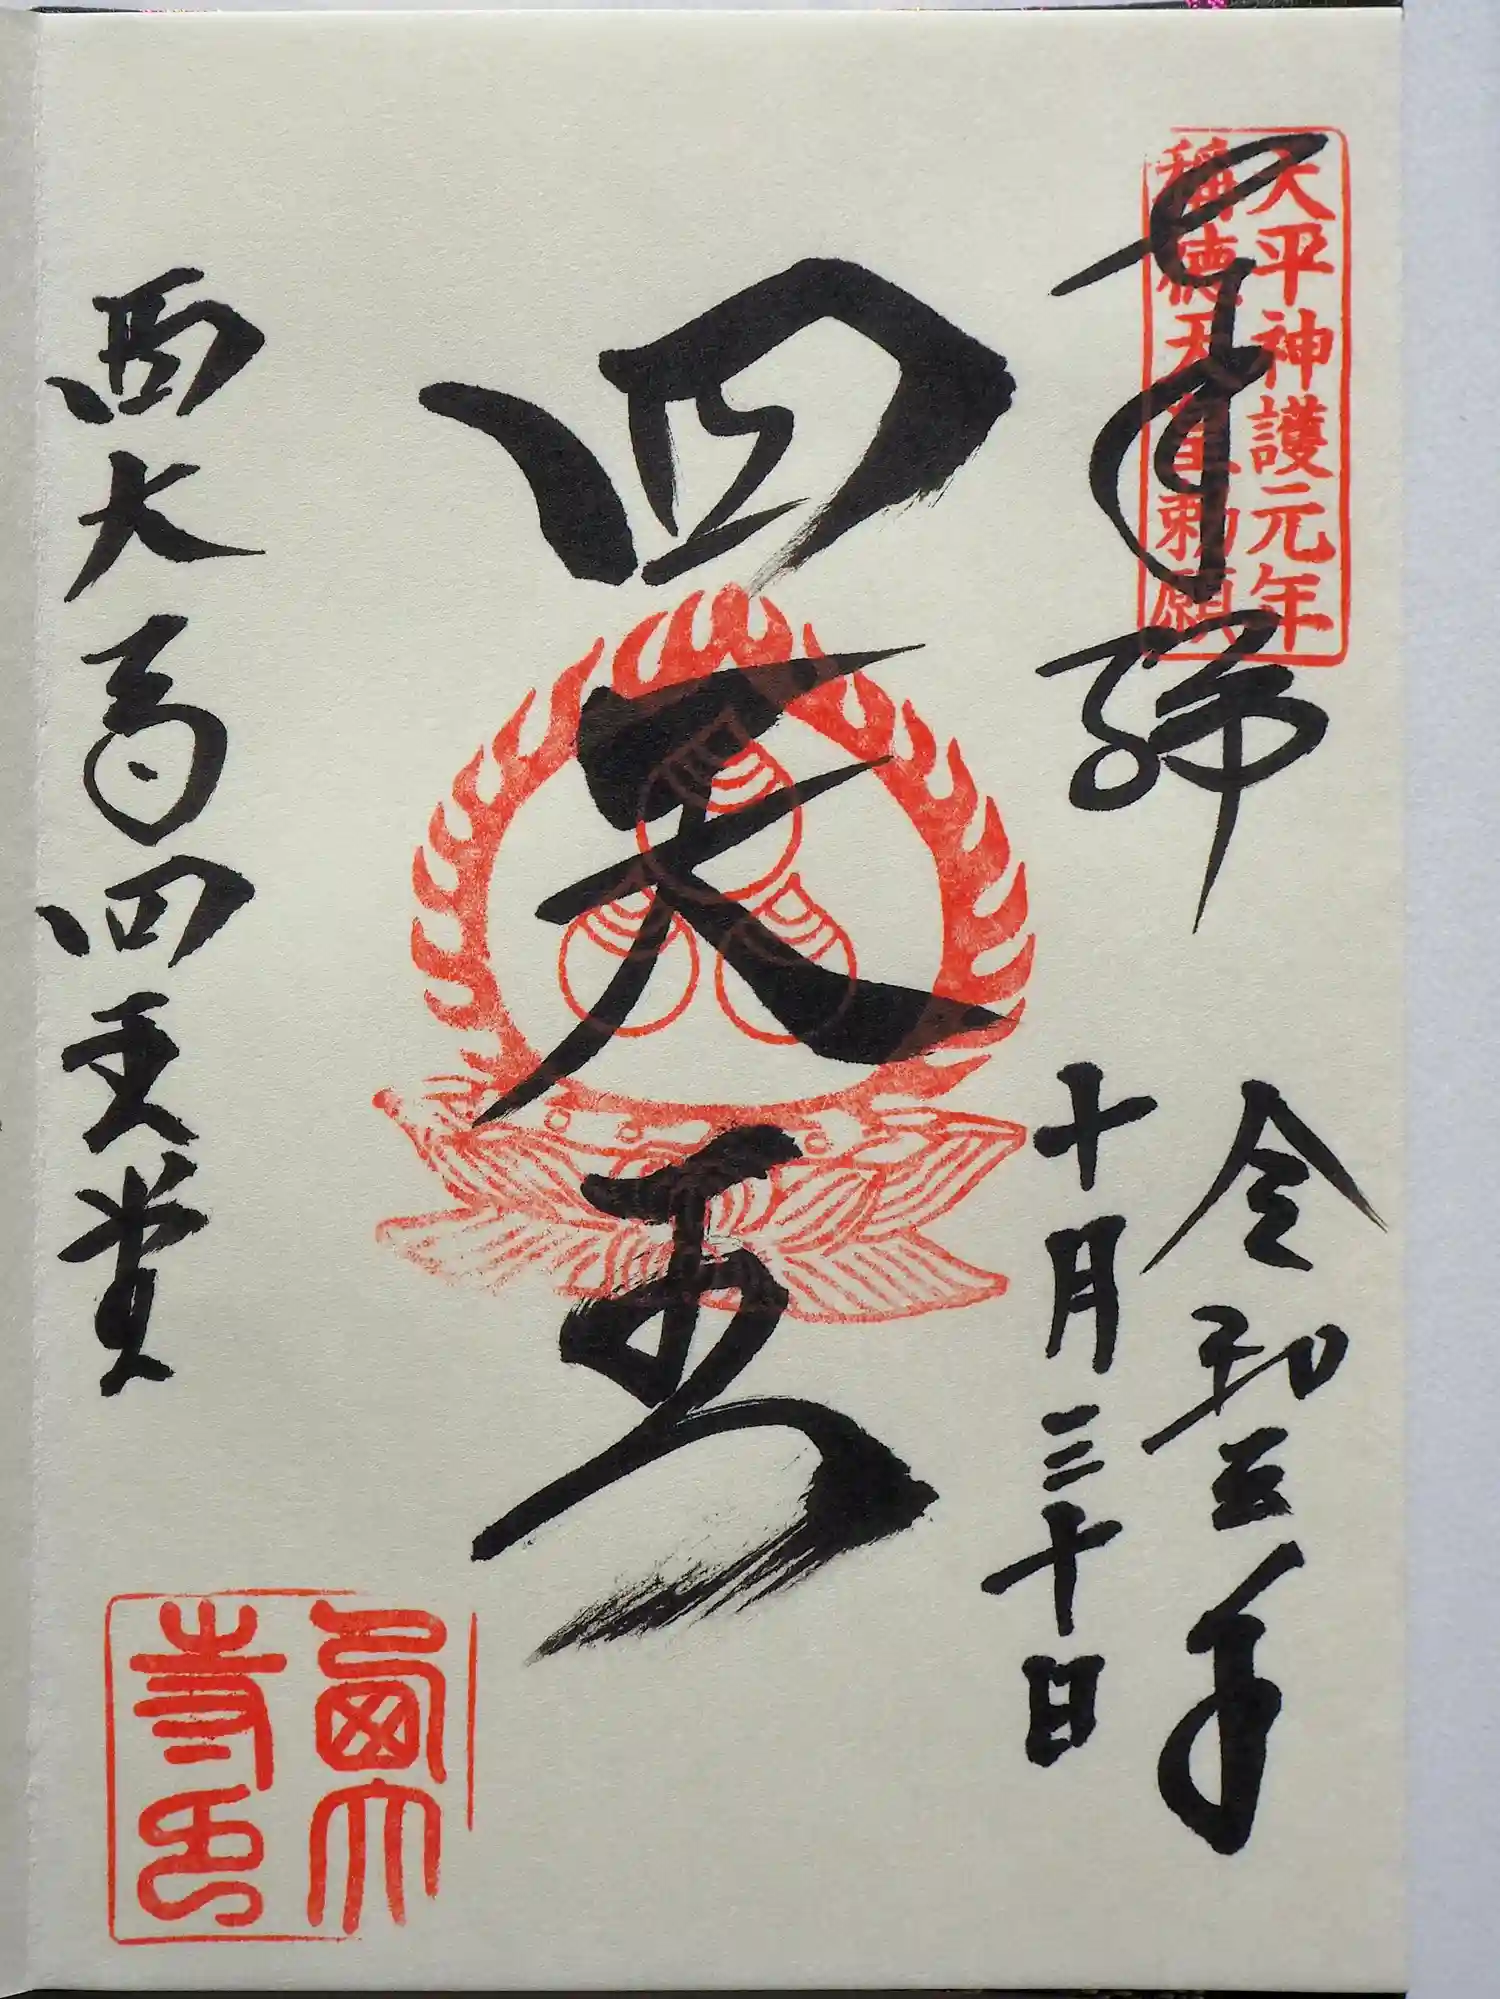 天平神護元年
稱徳天皇勅願
奉
令和
年
十月三十日
四天王
西大寺四王堂
西大
寺印